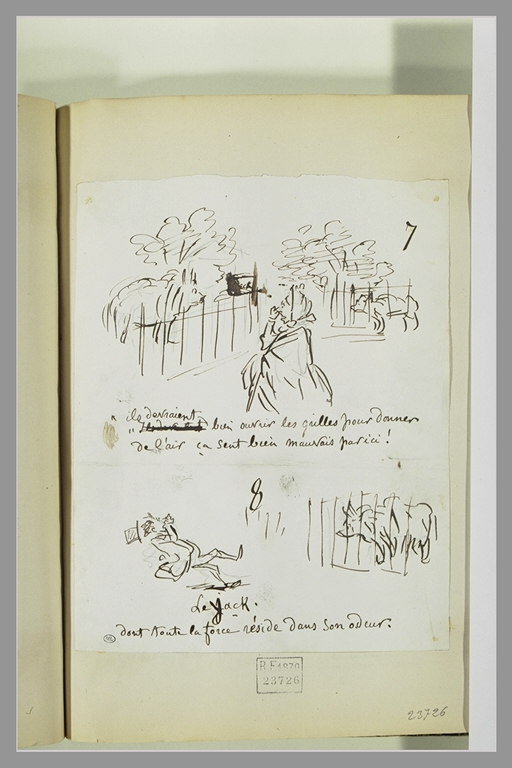 7
" ils devraient
" bien ouvrir les grilles pour donner
de l'air ça sent bien mauvais par ici !
8
Le jack.
dont toute la force réside dans son odeur.
R.F.
23726
23726